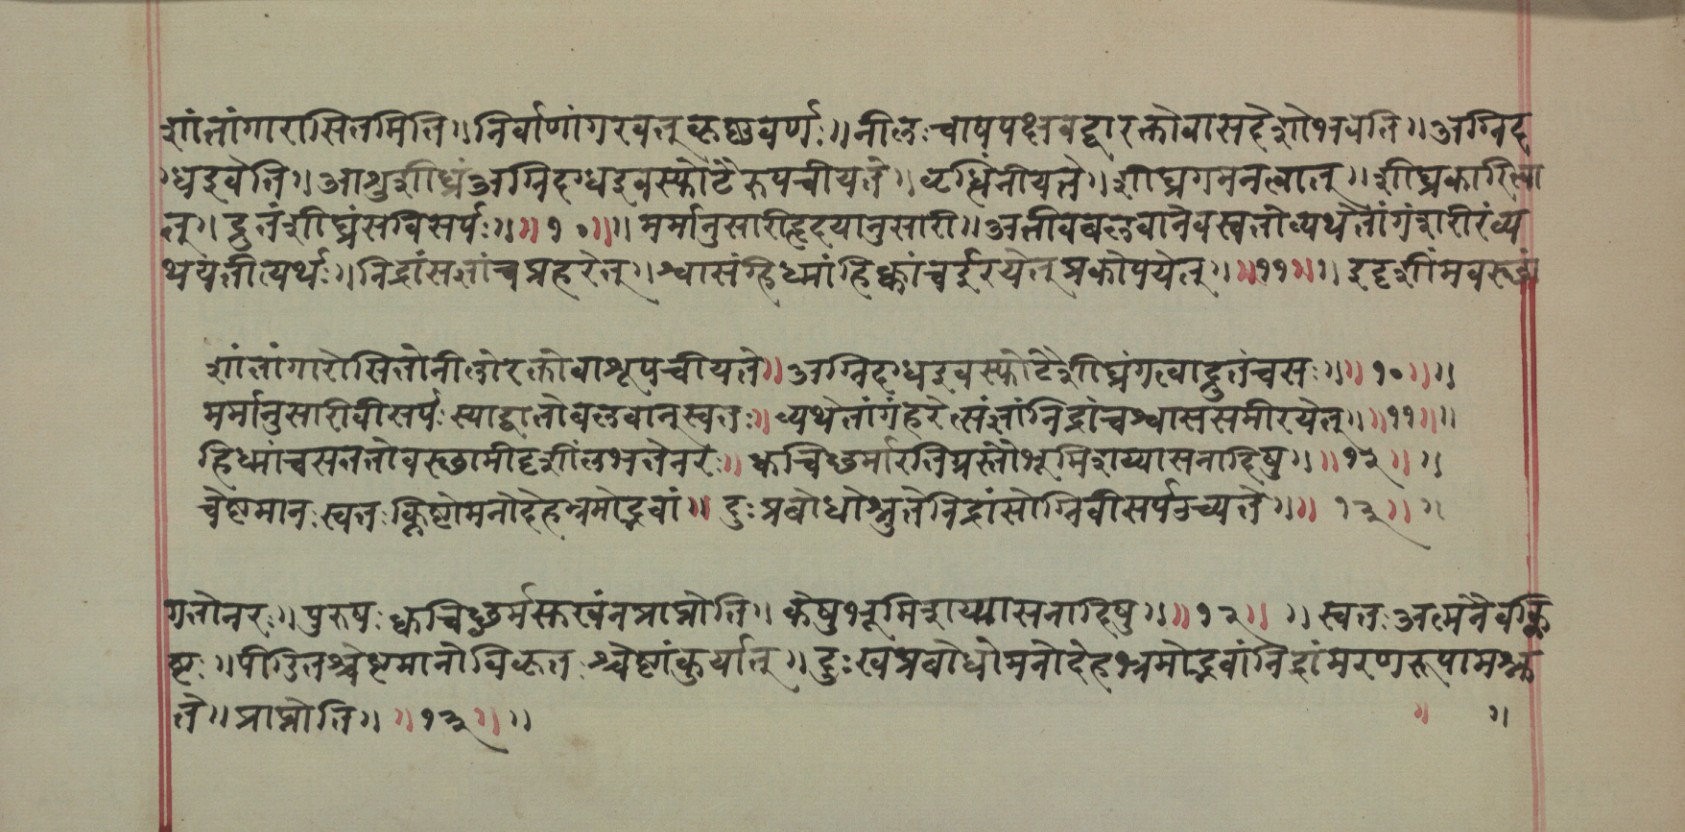 शांतांगारासितमिति॥ निर्वाणांगरवत् कृष्णवर्णः॥ नीलः चाषपक्षवद्वा रक्तोवासहैशोभवेति॥ अग्निद
ग्धइवेति॥ आशुशीघ्रं अग्निदग्धइवस्फोटैरुपचीयते॥ वृद्धिंनीयते॥ शीघ्रगमनत्वात्॥ शीघ्रकारित्वा
त्॥ द्रुतंशीघ्रंसविसर्पः॥॥ १०॥॥ मर्मानुसारीहृदयानुसारी॥ अतीवबलवानेवस्वतोव्यथेतांगंशरीरंव्य
थयतीत्यर्थः॥ निद्रांसज्ञांचप्रहरेत्॥ श्वासंग्हिध्मांहिक्कांचईरयेत् प्रकोपयेत्॥ ॥११॥॥ इदृशींमवस्थां
शांतांगारोसितोनीलोरक्तोवाशूपचीयते॥ अग्निदग्धइवस्फोटैशीघ्रंगत्वाद्रुतंचसः॥॥ १०॥॥
मर्मानुसारीवीसर्पः स्याद्वातोबलवान्स्वतः॥ व्यथेतांगंहरेत्संज्ञांनिद्रांचश्वाससमीरयेत्॥॥११॥॥
हिध्मांचसततोवस्छामीदृशींलभतेनरः॥ क्वचिछर्मारतिग्रस्तोभूमिशय्यासनादिषु॥॥ १२॥॥
चेष्टमानःस्वतःक्लिष्टोमनोदेहश्रमोद्भवां॥ दुःप्रबोधोश्नुतेनिद्रांसोग्निवीसर्पउच्यते॥॥ १३॥॥
गतोनरः॥ पुरुषः क्वचिछर्मस्करवंनप्राप्नोति॥ केषुभूमिशय्यासनादिषु॥॥१२॥ ॥ स्वतः अत्मनैवक्लि
ष्टः॥ पीडितश्चेष्टमानोविकृतः श्चेष्टांकुर्यात्॥ दुःखप्रबोधोमनोदेहश्रमोद्भवांनिद्रांमरणरूपामश्नु
ते॥ प्राप्नोति॥ ॥१३॥॥ ॥ ॥